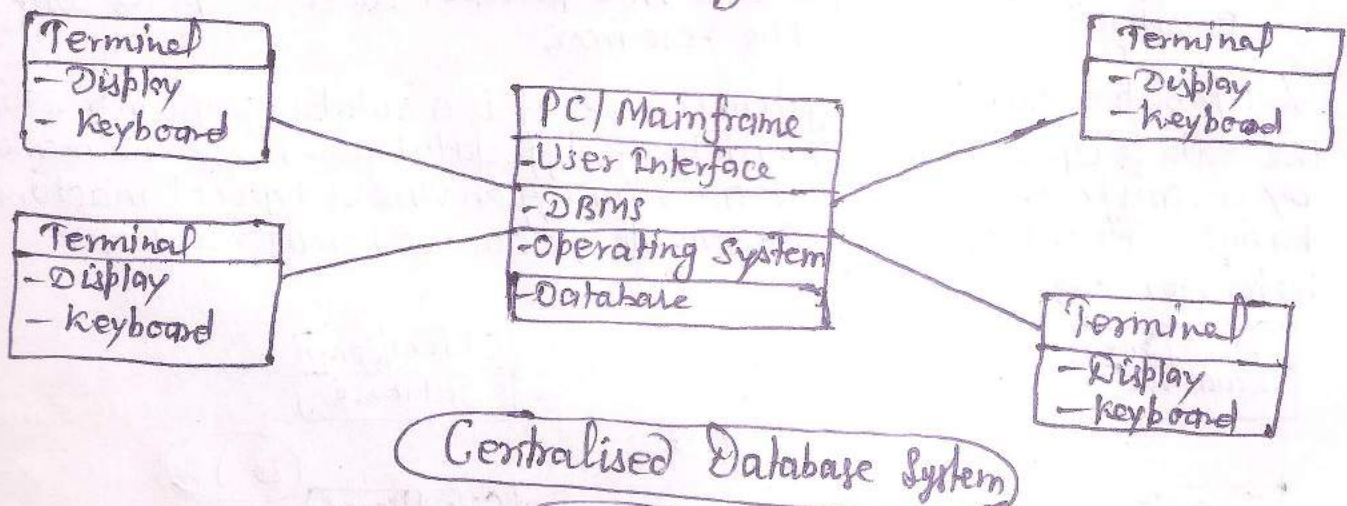 Terminal
- Display
- Keyboard
Terminal
- Display
- Keyboard
PC/Mainframe
-User Interface
-DBMS
-Operating System
-Database
Terminal
- Display
- Keyboard
Terminal
- Display
- Keyboard
Centralised Database System